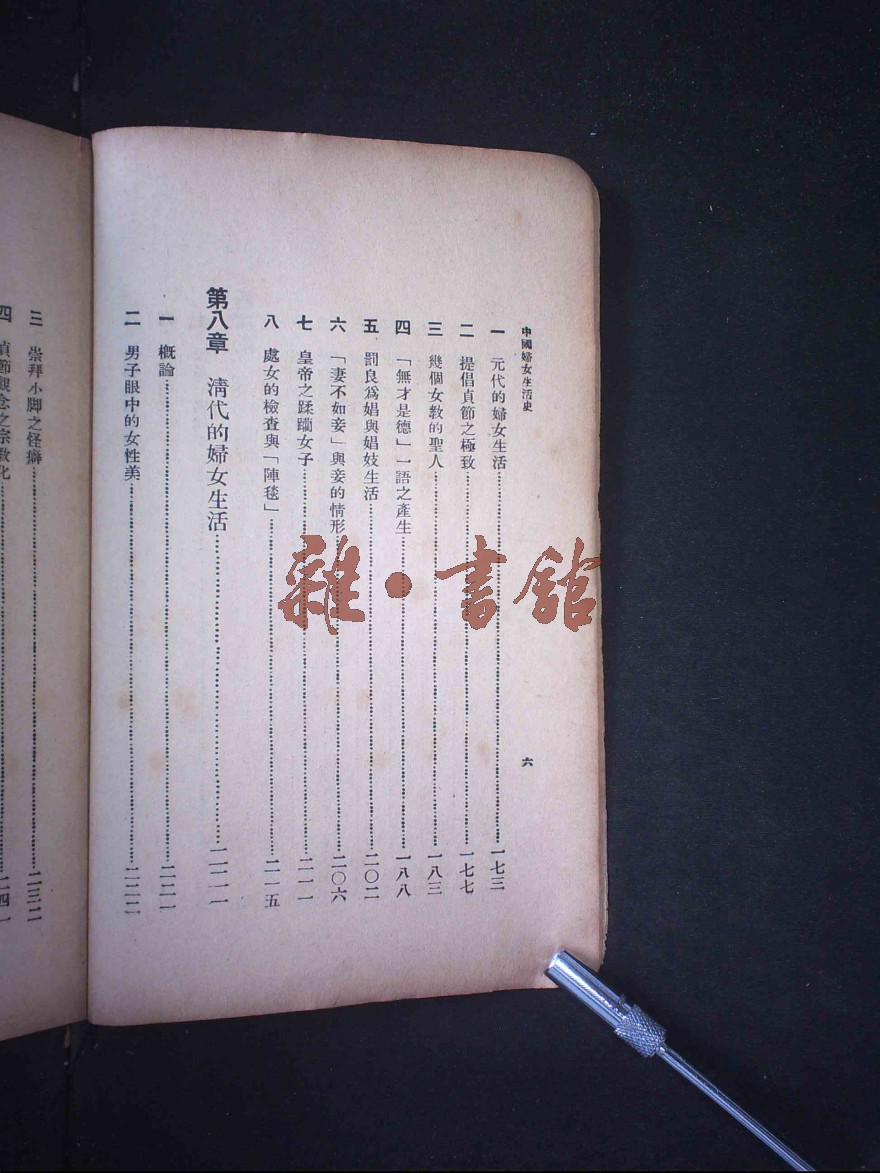 中國婦女生活史
六
一 元代的婦女生活……一七三
二 提倡貞節之極致……一七七
三 幾個女教的聖人……一八三
四 「無才是德」一語之產生……一八八
五 罰良爲娼與娼妓生活……二〇二
六 「妻不如妾」與妾的情形……二〇六
七 皇帝之蹂躪女子……二一一
八 處女的檢查與「陣毯」……二一五
第八章 淸代的婦女生活……二二一
一 概論……二二一
二 男子眼中的女性美……二二二
三 崇拜小脚之怪癖……二三二
四 貞節觀念之宗教化……二四一
雜·書館